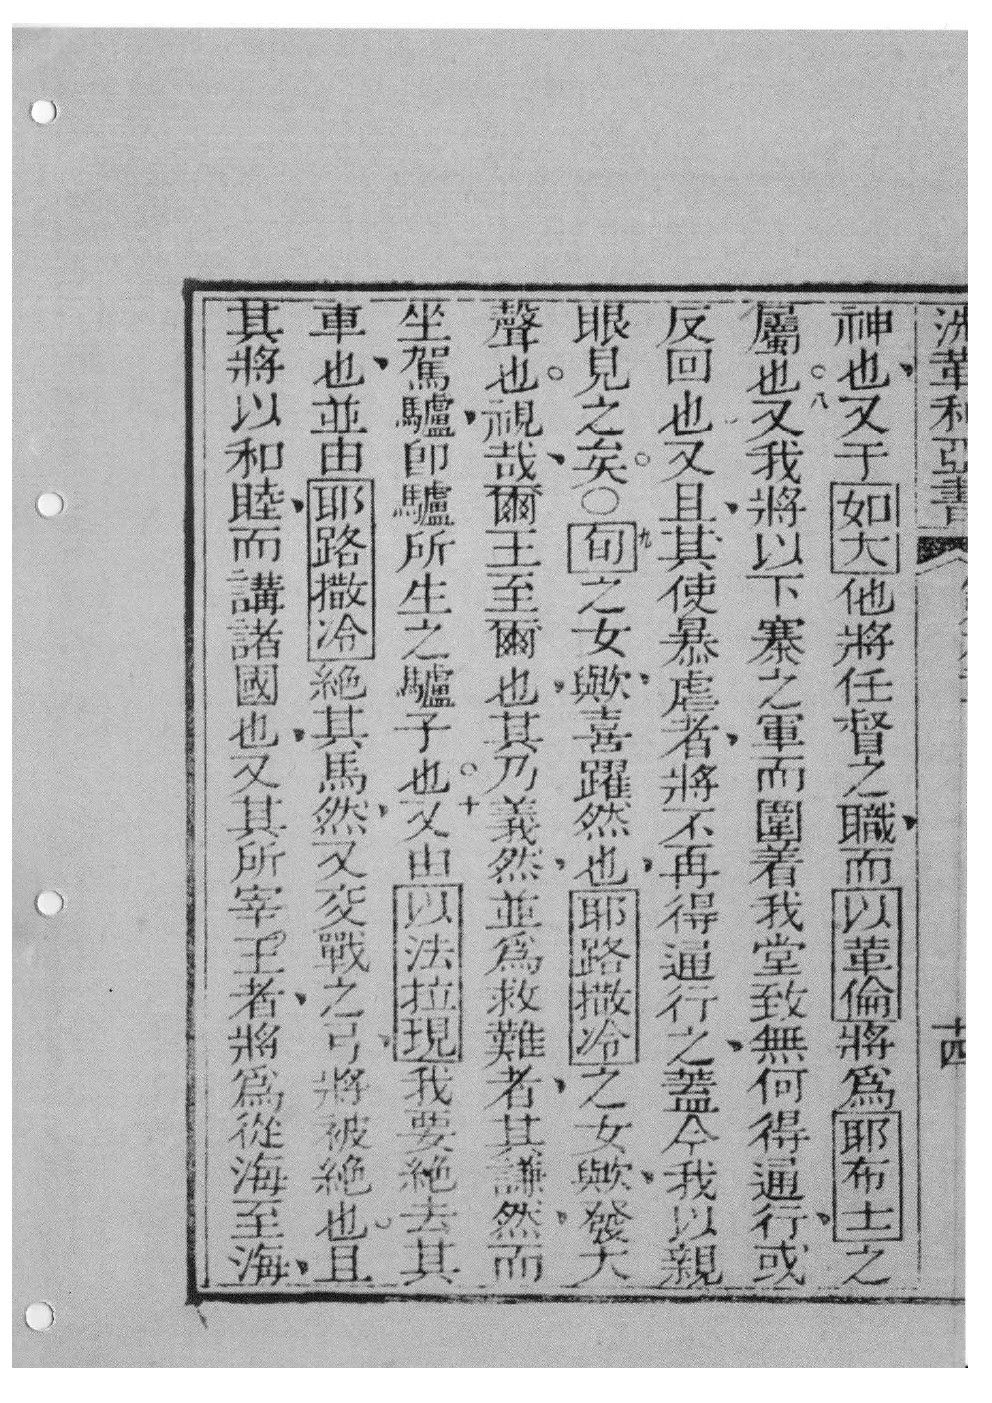 神也、又于如大他將任督之職、而以革倫將爲耶布士之
屬也。八又我將以下寨之軍而圍着我堂致無何得通行、或
反回也又且、其使暴虐者、將不再得通行之、蓋今我以親
眼見之矣。○九旬之女歟、喜躍然也、耶路撒冷之女歟、發大
聲也。視哉、爾王至爾也、其乃義然、並爲救難者、其謙然、而
坐駕驢、卽驢所生之驢子也。十又由以法拉現我要絕去其
車也、並由耶路撒冷絕其馬然、又交戰之弓、將被絕也。且
其將以和睦、而講諸國也、又其所宰王者、將爲從海至海、
十四